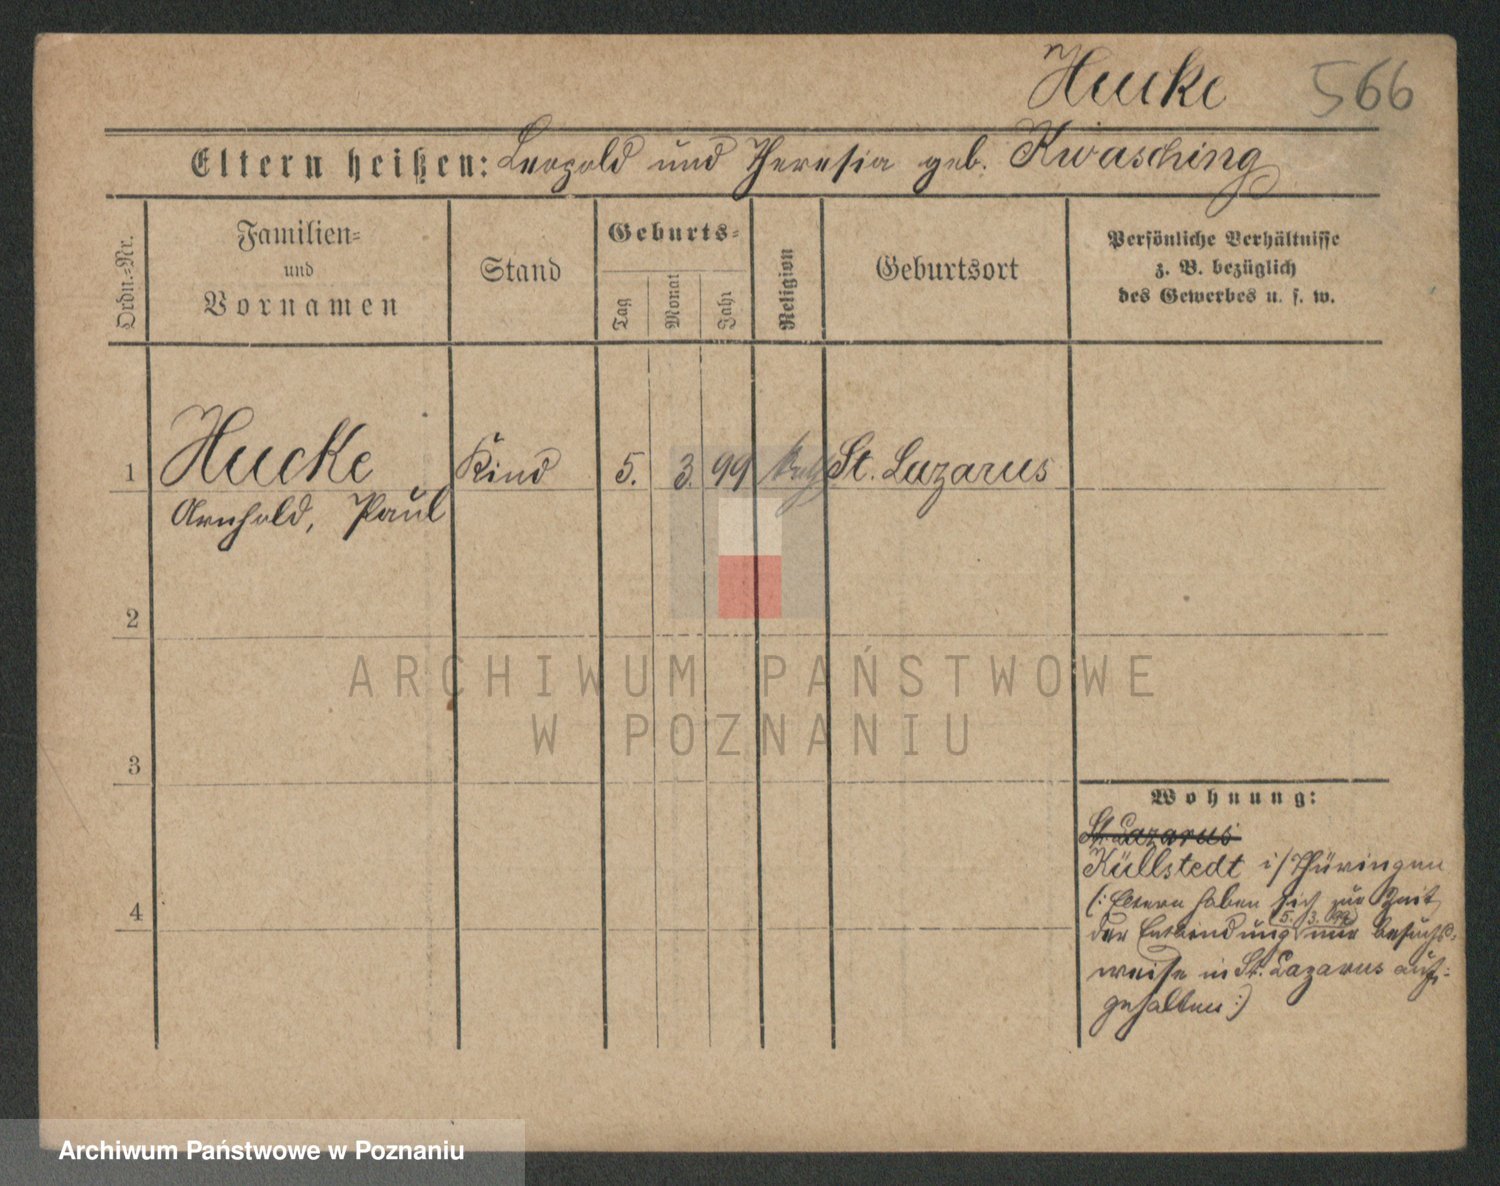 Hucke 566
Eltern heißen: Leopold und Theresia geb. Kwasching
Ordn.=Nr.
Familien=
und
Vornamen
Stand
Geburts=
Tag
Monat
Jahr
Religion
Geburtsort
Persönliche Verhältnisse
z. B. bezüglich
des Gewerbes u. s. w.
1 Hucke Kind 5. 3. 99 St. Lazarus
Arnhold, Paul
2
ARCHIWUM PAŃSTWOWE
W POZNANIU
3
Wohnung:
St. Lazarus
Küllstedt i/Thüringen
4
(: Eltern haben sich zur Zeit
der Entbindung (5. 3. 99) nur besuchs=
weise in St. Lazarus auf=
gehalten :)
Archiwum Państwowe w Poznaniu